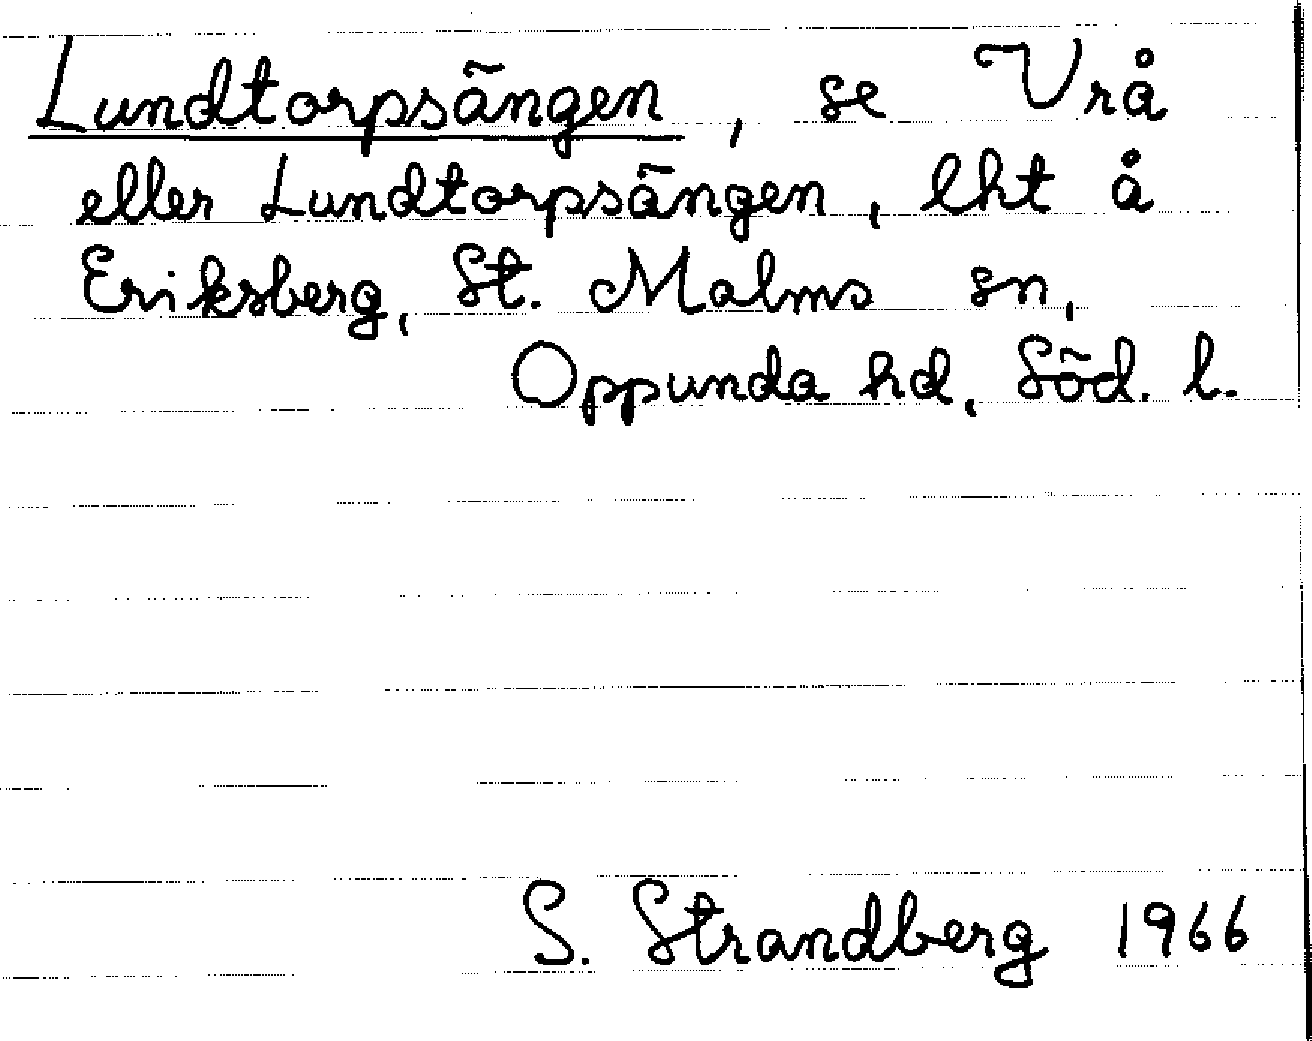 Lundtorpsängen, se Vrå
eller Lundtorpsängen, lht å
Eriksberg, St. Malms sn,
Oppunda hd, Söd. l.
S. Strandberg 1966